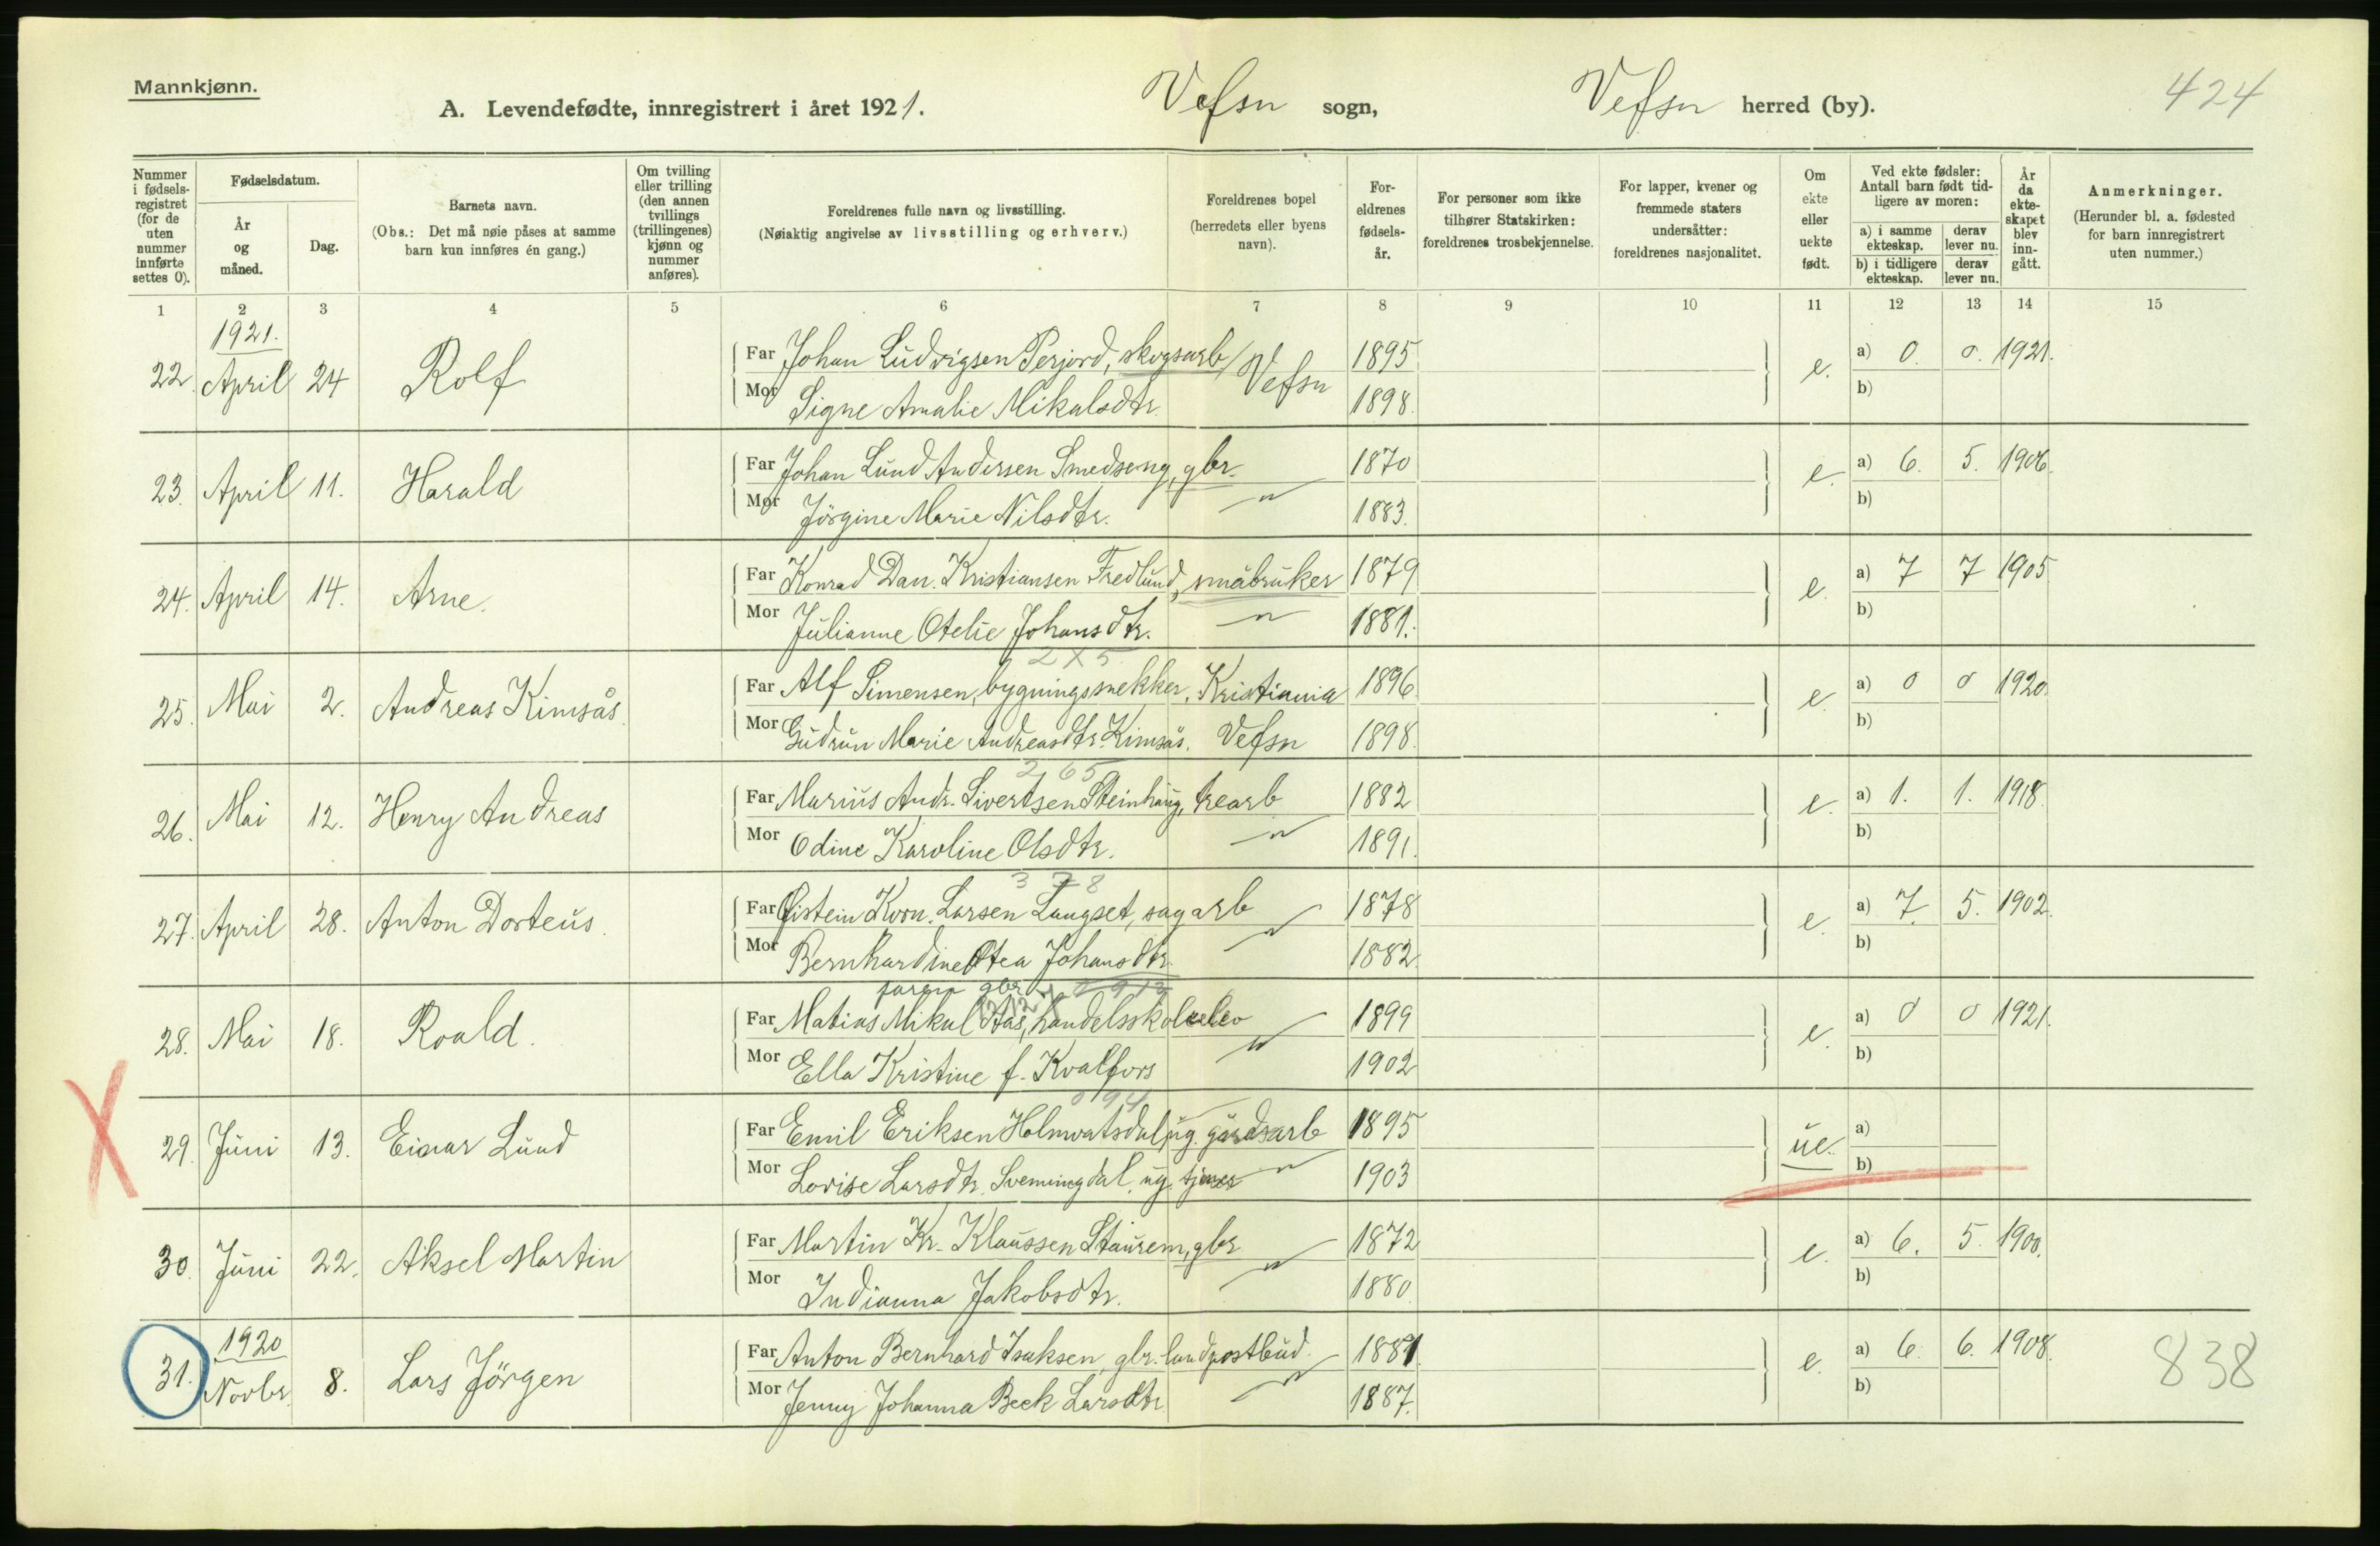 Mannkjønn.
A. Levendefødte, innregistrert i året 1921. Vefsn sogn, Vefsn herred (by). 424
Nummer i fødselsregistret (for de uten nummer innførte settes 0).
Fødselsdatum.
År og måned.
Dag.
Barnets navn.
(Obs.: Det må nøie påses at samme barn kun innføres én gang.)
Om tvilling eller trilling (den annen tvillings (trillingenes) kjønn og nummer anføres).
Foreldrenes fulle navn og livsstilling.
(Nøiaktig angivelse av livsstilling og erhverv.)
Foreldrenes bopel (herredets eller byens navn).
Foreldrenes fødselsår.
For personer som ikke tilhører Statskirken: foreldrenes trosbekjennelse.
For lapper, kvener og fremmede staters undersåtter: foreldrenes nasjonalitet.
Om ekte eller uekte født.
Ved ekte fødsler: Antall barn født tidligere av moren:
a) i samme ekteskap. derav lever nu.
b) i tidligere ekteskap. derav lever nu.
År da ekteskapet blev inngått.
Anmerkninger.
(Herunder bl. a. fødested for barn innregistrert uten nummer.)
1 2 3 4 5 6 7 8 9 10 11 12 13 14 15
1921.
22 April 24 Rolf Far Johan Ludvigsen Perjord, skogsarb Vefsn 1895 e. a) 0. 0. 1921.
Mor Signe Amalie Mikalsdtr. 1898. b)
23. April 11. Harald Far Johan Lund Andersen Smedseng, gbr. 1870 e. a) 6. 5. 1906.
Mor Jörgine Marie Nilsdtr. " 1883. b)
24. April 14. Arne. Far Konrad Dan. Kristiansen Fredlund, småbruker 1879 e. a) 7 7 1905
Mor Julianne Otelie Johansdtr. " 1881. b)
2 X 5
25. Mai 2. Andreas Kimsås. Far Alf Simensen, bygningssnekker, Kristiania 1896 e. a) 0 0 1920.
Mor Gudrun Marie Andreasdtr. Kimsås. Vefsn 1898. b)
2 65
26. Mai 12. Henry Andreas Far Marius Andr. Sivertsen Steinhaug, trearb 1882 e. a) 1. 1. 1918.
Mor Odine Karoline Olsdtr. " 1891. b)
3 7 8
27. April 28. Anton Dorteus. Far Øistein Korn. Larsen Langset, sagarb 1878 e. a) 7. 5. 1902.
Mor Bernhardine Otea Johansdtr. " 1882. b)
gbr
28. Mai 18. Roald. Far Matias Mikal Aas, handelsskoleelev 1899 e. a) 0 0 1921.
Mor Ella Kristine f. Kvalfors " 1902 b)
0 94
29. Juni 13. Einar Lund Far Emil Eriksen Holmvatsdal, ug. gårdsarb 1895 ue. a)
Mor Lovise Larsdtr. Svenningdal, ug. tjener " 1903 b)
30. Juni 22. Aksel Martin Far Martin Kr. Klaussen Staurem, gbr 1872 e. a) 6. 5. 1900.
Mor Indianna Jakobsdtr. " 1880. b)
1920
31. Novbr. 8. Lars Jörgen Far Anton Bernhard Isaksen, gbr. landpostbud. 1881. e. a) 6. 6. 1908. 838
Mor Jenny Johanna Beck Larsdtr. " 1887. b)